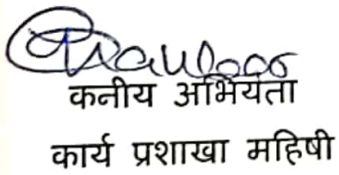 कनीय अभियंता
कार्य प्रशाखा महिषी